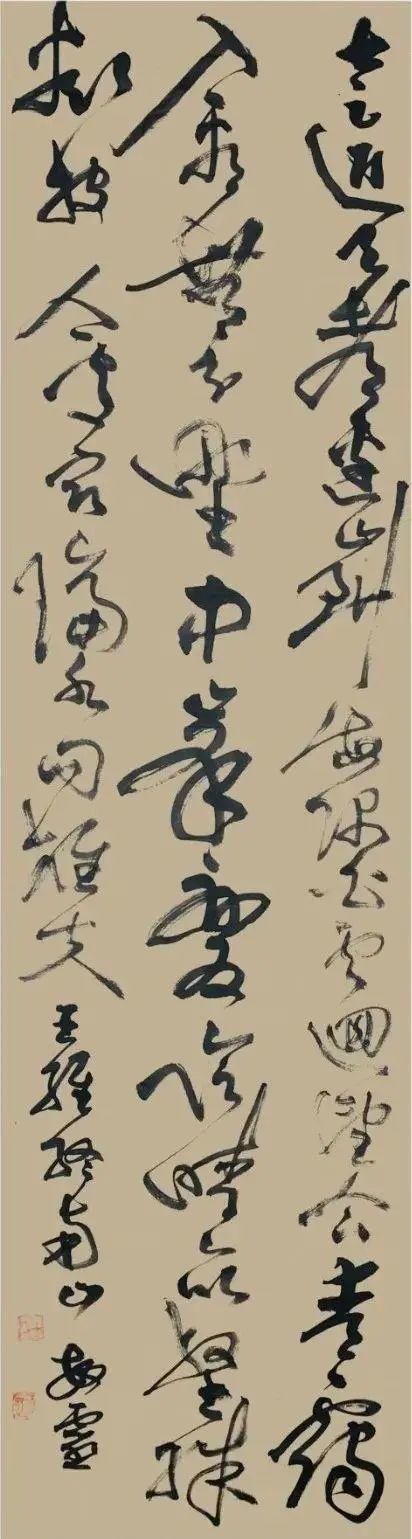 太乙近天都連山到海隅白雲迴望合青靄
入看無分野中峯變陰晴衆壑殊
欲投人處宿隔水問樵夫 王維終南山